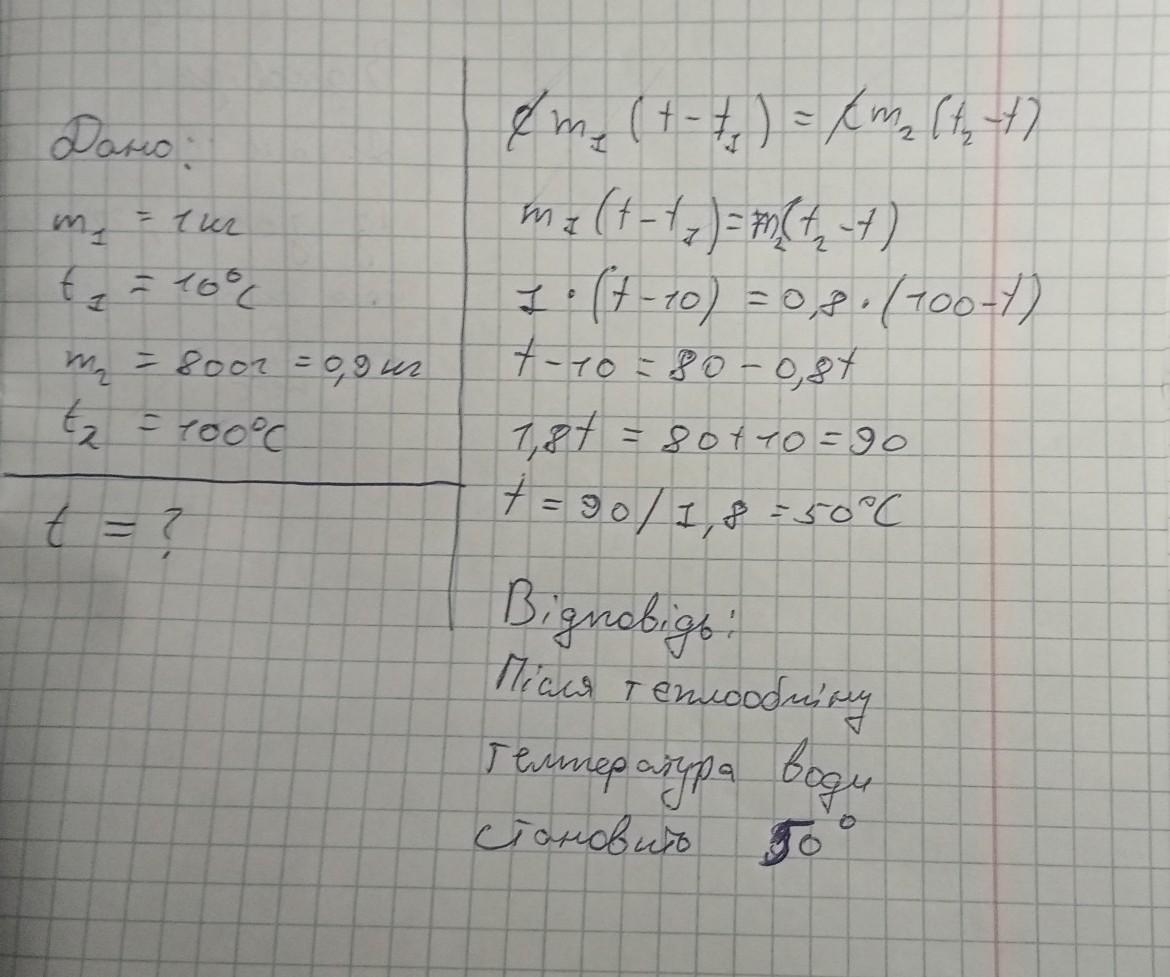 Дано:
m₁ = 1 кг
t₁ = 10°C
m₂ = 800г = 0,9 кг
t₂ = 100°C
t = ?
c m₁ (t - t₁) = c m₂ (t₂ - t)
m₁ (t - t₁) = m₂ (t₂ - t)
1 · (t - 10) = 0,8 · (100 - t)
t - 10 = 80 - 0,8t
1,8t = 80 + 10 = 90
t = 90 / 1,8 = 50°C
Відповідь:
Після теплообміну
температура води
становить 50°